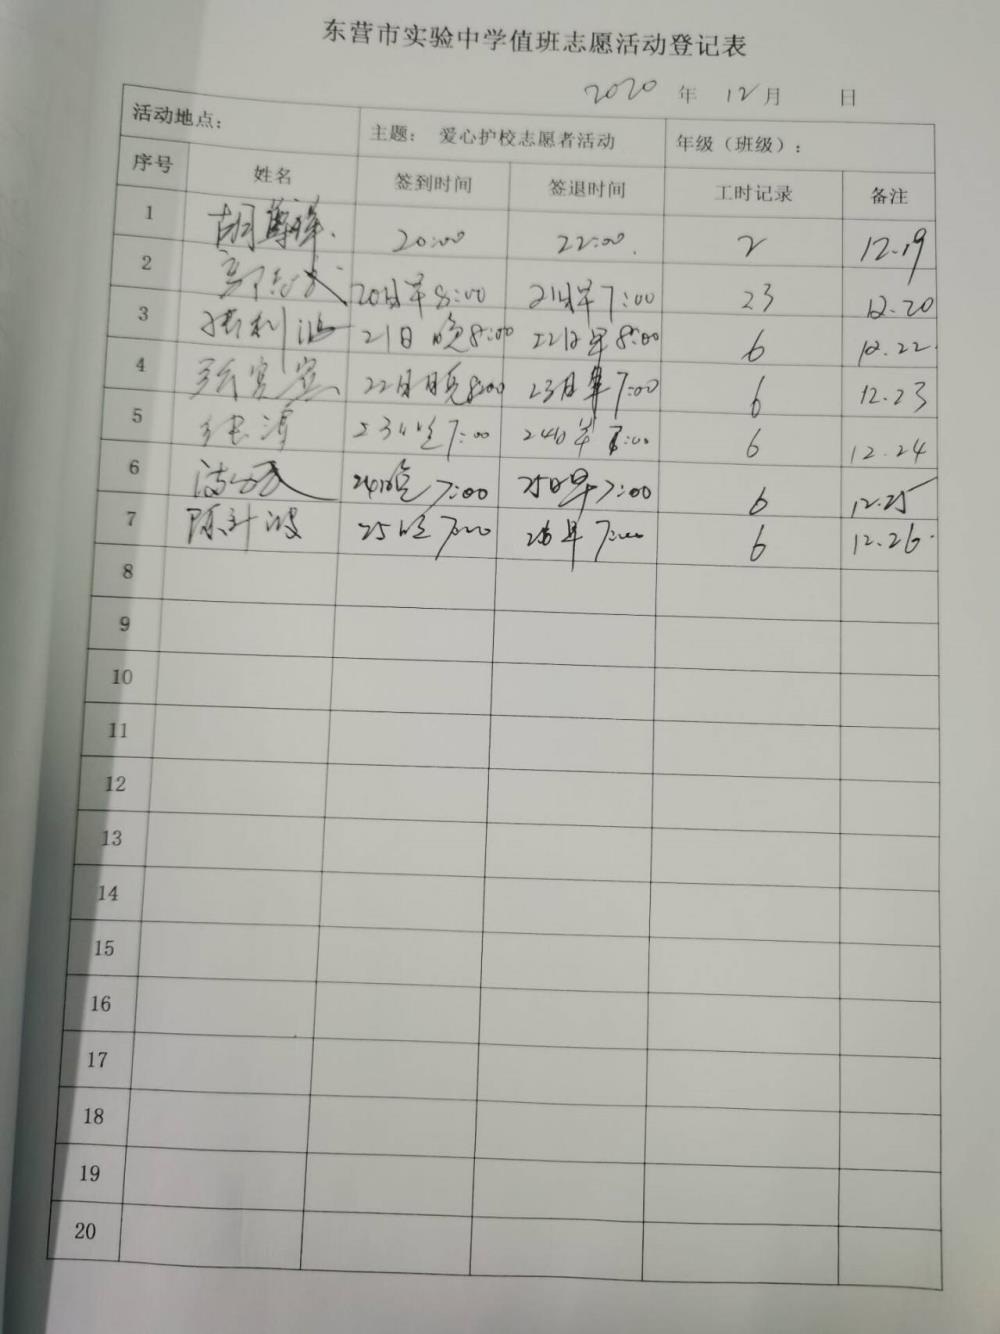 东营市实验中学值班志愿活动登记表
2020 年 12月 日
活动地点： 主题： 爱心护校志愿者活动 年级（班级）：
序号 姓名 签到时间 签退时间 工时记录 备注
1 胡 20:00 22:00. 2 12.19
2 20日早8:00 21日早7:00 23 12.20
3 21日晚8:00 22日早8:00 6 12.22
4 22日晚8:00 23日早7:00 6 12.23
5 23日晚7:00 24日早7:00 6 12.24
6 24日晚7:00 25日早7:00 6 12.25
7 陈 波 25日晚7:00 26早7:00 6 12.26.
8
9
10
11
12
13
14
15
16
17
18
19
20